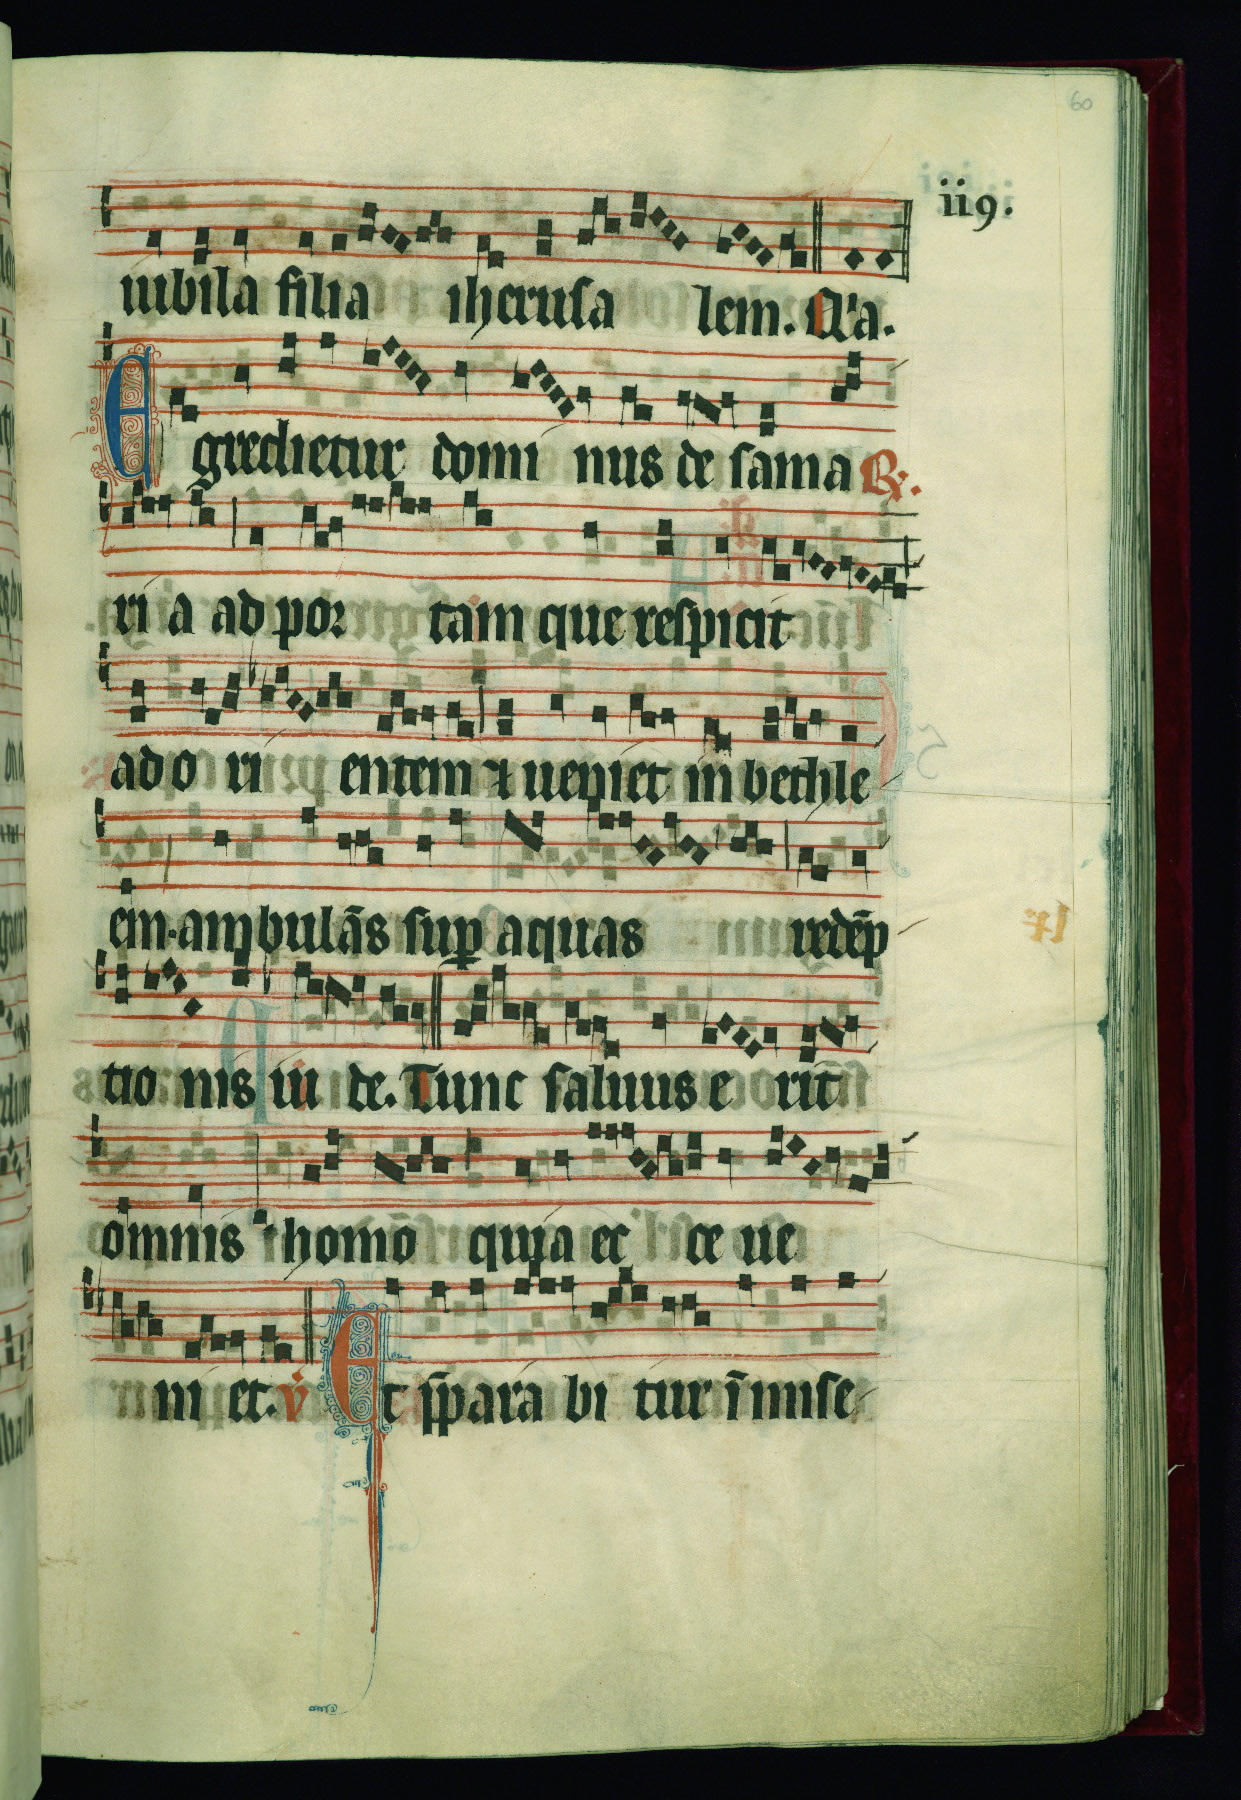 60
ii9.
iubila filia iherusa lem. Q'a.
Egredietur domi nus de sama R̃.
ri a ad por tam que respicit
ad o ri entem ⁊ ueniet in bethle
em. ambulãs sup̱ aquas redẽp
tio nis iu de. Tunc saluus e rit
omnis homo quia ec ce ue
ni et. v̇ Et p̃para bi tur ĩ mise